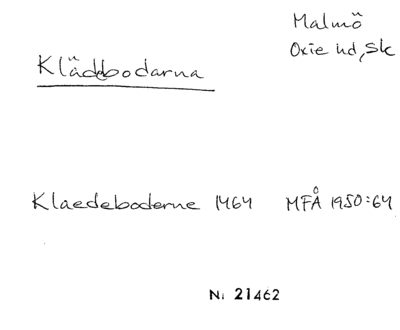 Malmö
Oxie hd, Sk
Klädebodarna
Klaedeboderne 1464 MFÅ 1950:64
N: 21462